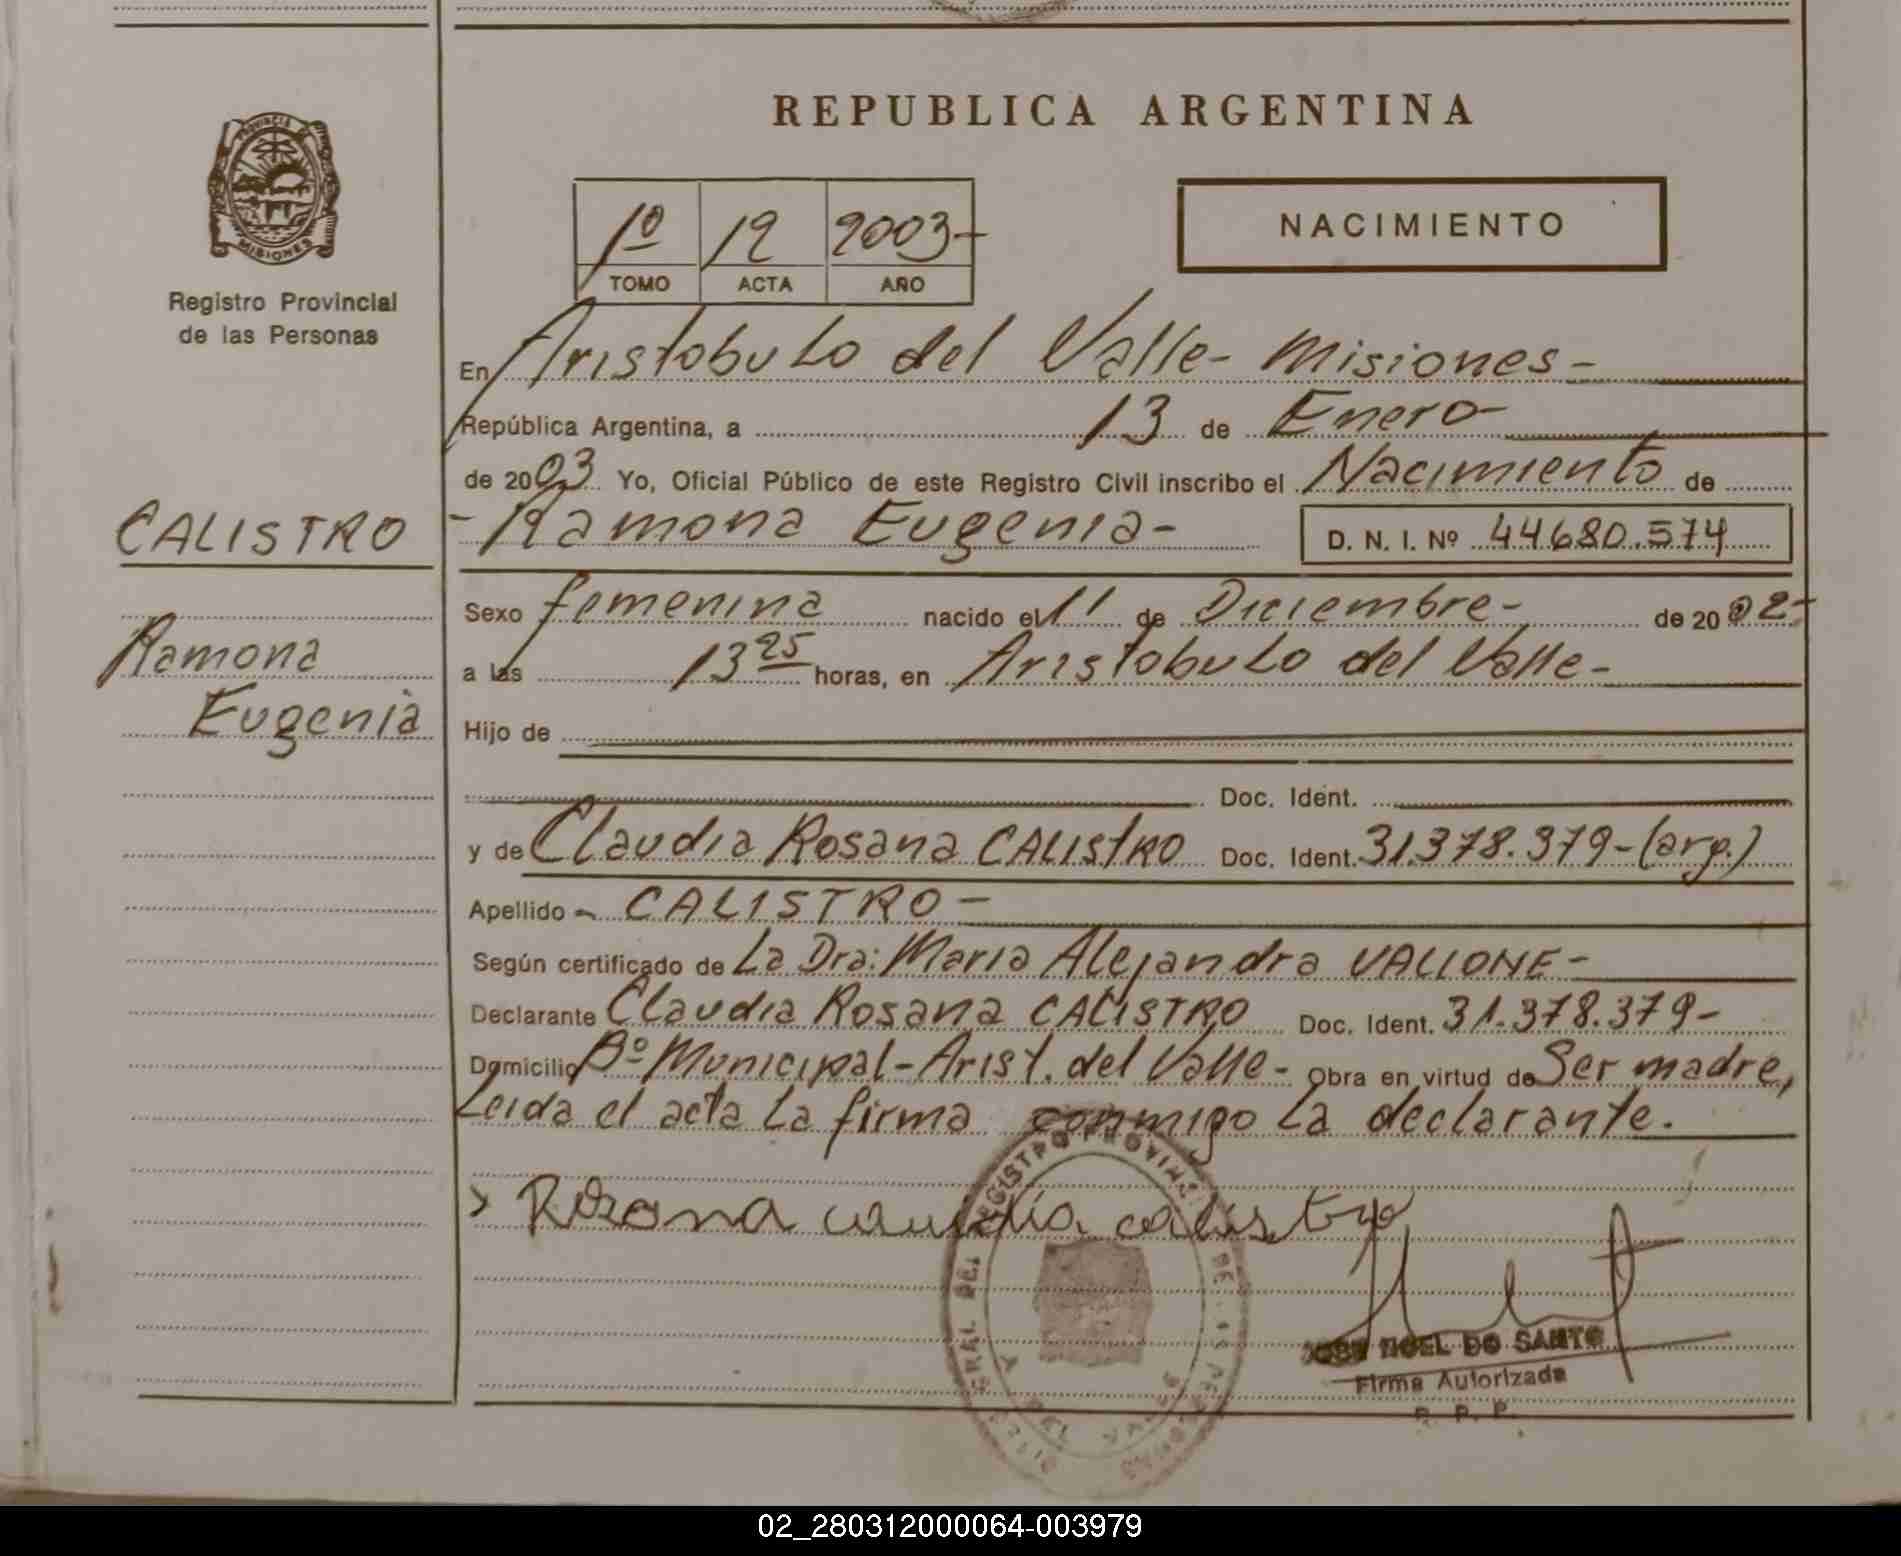 REPUBLICA ARGENTINA
PROVINCIA DE
MISIONES
Registro Provincial
de las Personas
1º 12 2003-
TOMO ACTA AÑO
NACIMIENTO
En Aristobulo del Valle- Misiones-
República Argentina, a 13 de Enero-
de 2003 Yo, Oficial Público de este Registro Civil inscribo el Nacimiento de
CALISTRO
Ramona
Eugenia
-Ramona Eugenia-
D. N. I. Nº 44680.574
Sexo femenina nacido el 11 de Diciembre- de 2002-
a las 13 25 horas, en Aristobulo del Valle-
Hijo de
Doc. Ident.
y de Claudia Rosana CALISTRO Doc. Ident. 31.378.379-(arg.)
Apellido - CALISTRO-
Según certificado de La Dra: Maria Alejandra VALLONE-
Declarante Claudia Rosana CALISTRO Doc. Ident. 31.378.379-
Domicilio Bº Municipal-Arist. del Valle- Obra en virtud de Ser madre,
Leida el acta La firma conmigo La declarante.
Rosana calistro
JOSE NOEL DO SANTO
Firma Autorizada
R. P. P.
REGISTRO PROVINCIAL DE LAS PERSONAS
02_280312000064-003979